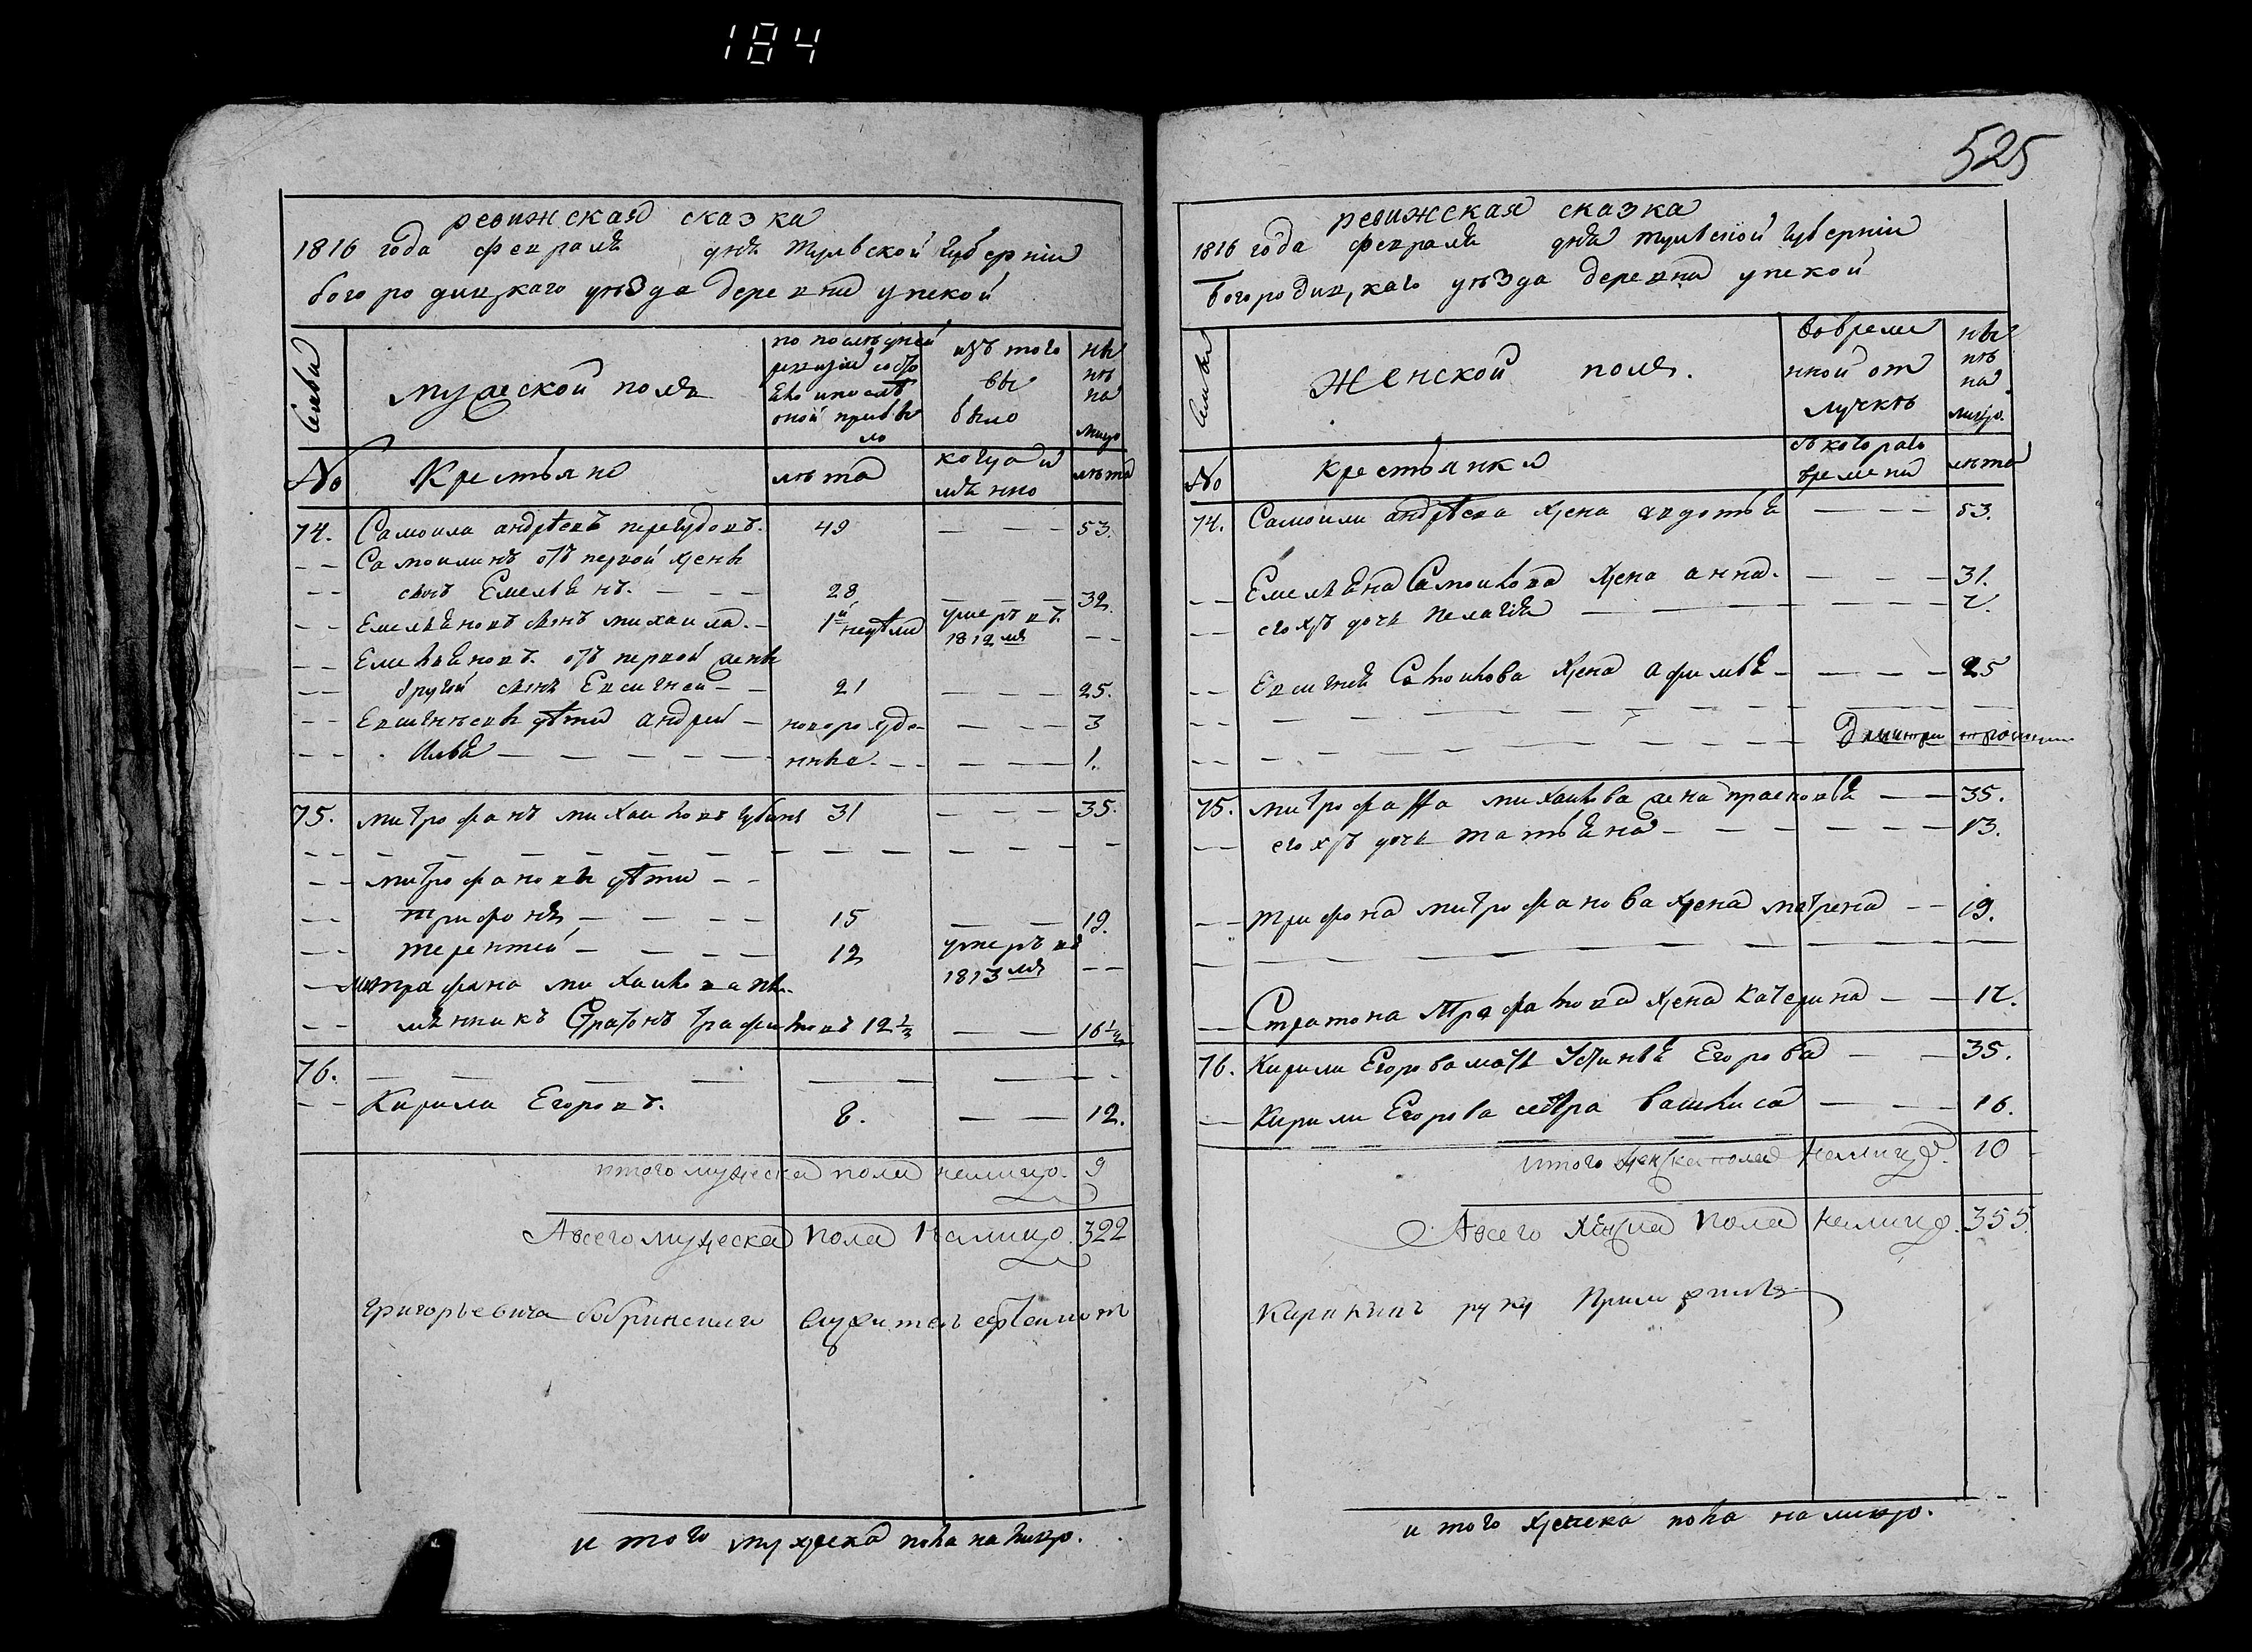 184
ревижская сказка
1816 года февраля дня Тульской губернiи
богородицкаго уѣзда деревни упской
семьи
мужеской полъ
по послѣдней ревизiи состояло и послѣ оной прибыло
изъ того выбыло
ны нѣ на лицо
№
Крестьяне
лѣта
когда имянно
лѣта
74. Самоила андрѣевъ 49 — — — 53.
Самоилинъ отъ первой жены
сынъ Емельянъ. — — — 28 — — — 32.
Емельяновъ сынъ михаила. — 1½ недѣли умеръ въ 1812 мъ — —
Емельяновъ. отъ первой жены
другой сынъ Евсигней — — 21 — — — 25.
Евсигнѣевы дѣти андрей — новорожде- — — — 3
Илья — — — — — нные. — — — — — 1.
75. митрофанъ михаиловъ губанъ 31 — — — 35.
митрофановы дѣти — —
трифонъ — — — — 15 — — 19.
терентей — — — — 12 умеръ въ 1813 мъ — —
митрафана михаилова пле-
мянникъ Стратонъ трафимовъ 12½ — — 16½
76. — — — — — — —
Кирила Егоровъ. 8. — — 12.
итого мужеска пола налицо. 9
А всего мужеска пола налицо. 322
Григорьевича бобринскаго служитель
итого мужеска пола на лицо.
525
ревижская сказка
1816 года февраля дня тульской губернiи
богородицкаго уѣзда деревни упской
семьи
Женской полъ.
во времянной отлучкѣ
ны нѣ на лицо.
№
крестьянки
съ котораго времени
лѣта
74. Самоилы андрѣева жена авдотья — — — 53.
Емельяна Самоилова жена анна. — — — 31.
его жъ дочь пелагѣя — — — 7.
Евсигнея Самоилова жена афимья — — — — 25
75. митрофана михаилова жена прасковья — — 35.
его жъ дочь татьяна — — — — — 13.
трифона митрофанова жена матрена — — 19.
Стратона трафимова жена катерина — — 17.
76. Кирилы Егорова мать Устинья Егорова — — 35.
Кирилы Егорова сестра василиса — — — 16.
итого женска пола налицо. 10
А всего женска пола налицо. 355
руку приложилъ
итого женска пола на лицо.